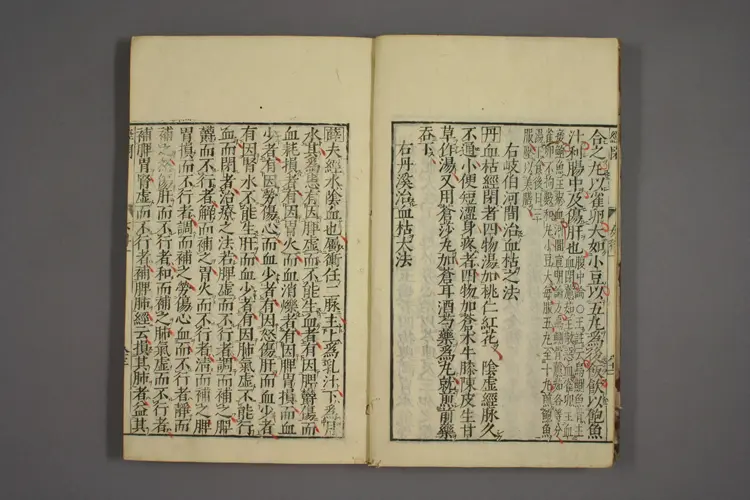 合之丸以雀卵大如小豆以五丸爲後飯飲以鮑魚
汁利腸中及傷肝也
右岐伯河間治血枯之法
丹血枯經閉者四物湯加桃仁紅花 陰虛經脈久
不通小便短澀身疼者四物加蒼木牛膝陳皮生甘
草作湯又用蒼莎丸加蒼耳酒芍藥爲丸就煎前藥
吞下
右丹溪治血枯大法
薛夫經水陰血也屬衝任二脈主上爲乳汁下爲月
水其爲患有因脾虛而不能生血者有因脾鬱傷而
血耗損者有因胃火而血消爍者有因脾胃損而血
少者有因勞傷心而血少者有因怒傷肝而血少者
有因腎水不能生肝而血少者有因肺氣虛不能行
血而閉者治療之法若脾虛而不行者調而補之脾
鬱而不行者解而補之胃火而不行者清而補之脾
胃損而不行者調而補之勞傷心血而不行者靜而
補之怒傷肝而不行者和而補之肺氣虛而不行者
補脾胃腎虛而不行者補脾肺經云損其肺者益其